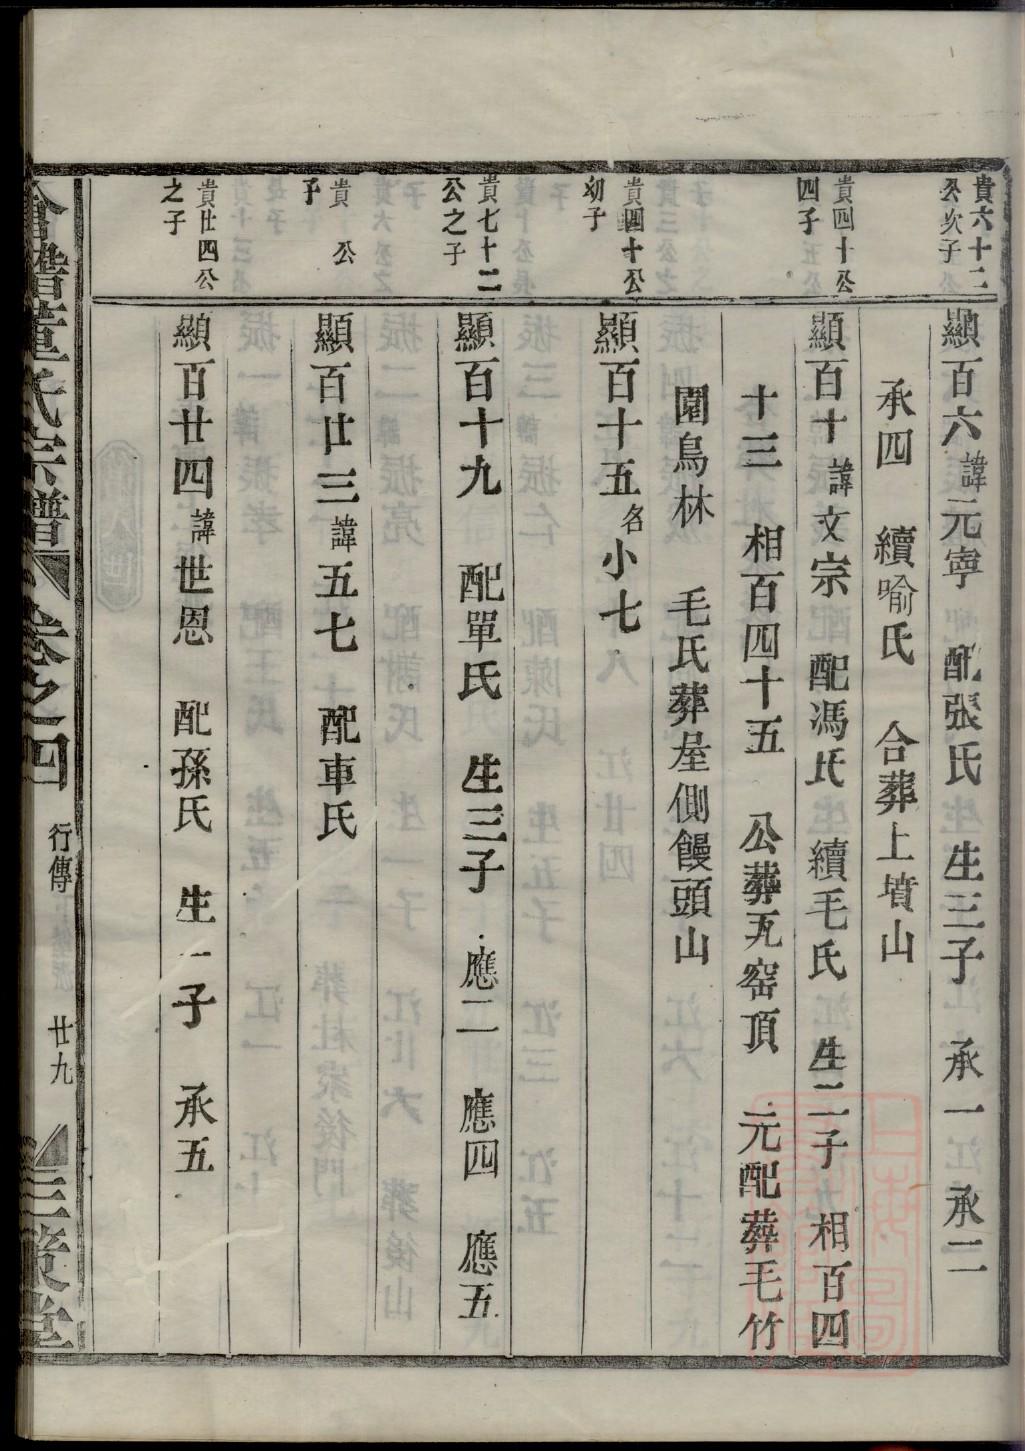 貴六十二
公次子
顯百六諱元寧 配張氏 生三子 承一 承二
承四 續喻氏 合葬上墳山
貴四十公
四子
顯百十諱文宗 配馮氏 續毛氏 生二子 相百四
十三 相百四十五 公葬瓦窑頂 元配葬毛竹
園鳥林 毛氏葬屋側饅頭山
貴四十公
幼子
顯百十五名小七
貴七十二
公之子
顯百十九 配單氏 生三子 應二 應四 應五
貴 公
子
顯百廿三諱五七 配車氏
貴廿四公
之子
顯百廿四諱世恩 配孫氏 生一子 承五
會稽董氏宗譜 卷之四 行傳 廿九 三策堂